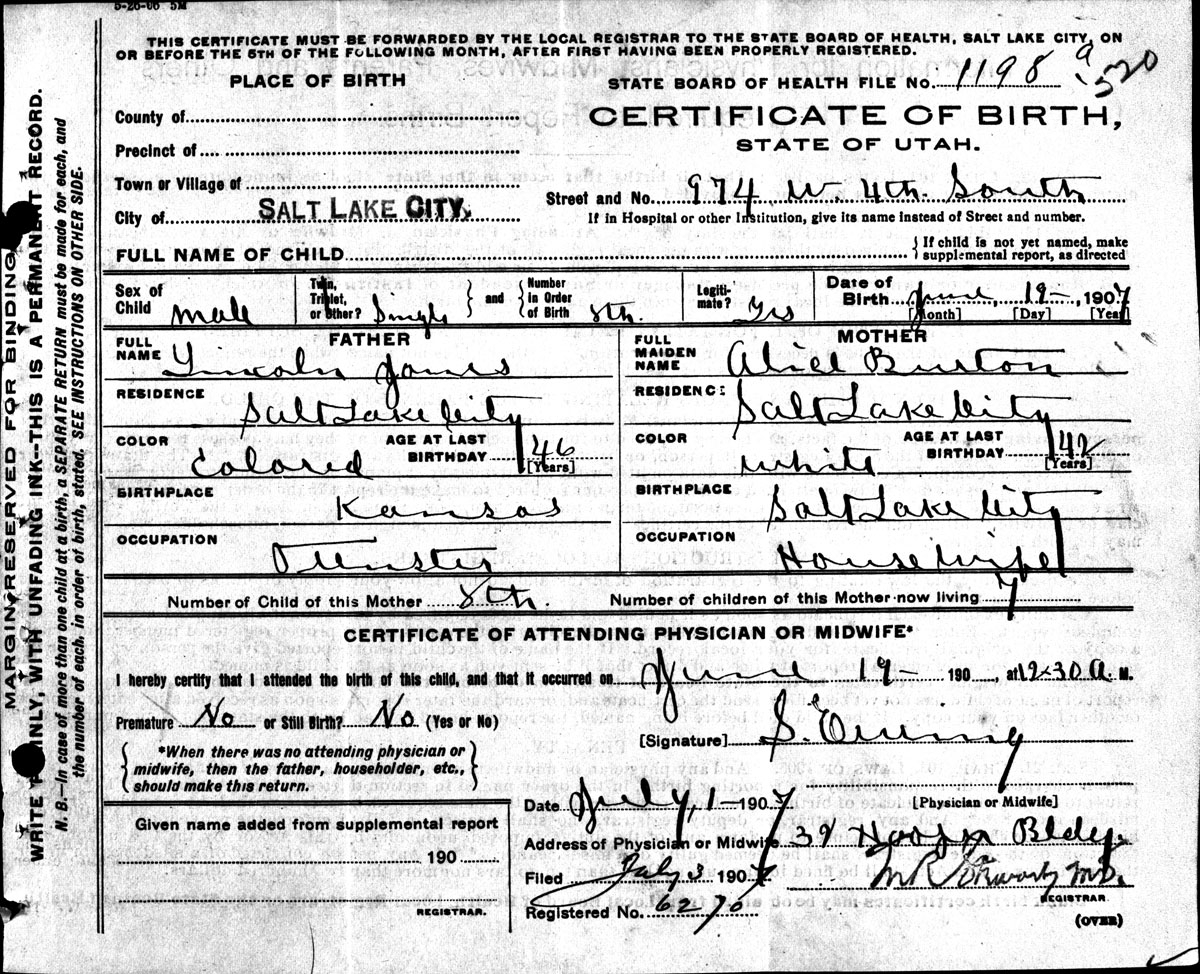 5-26-06 5M
THIS CERTIFICATE MUST BE FORWARDED BY THE LOCAL REGISTRAR TO THE STATE BOARD OF HEALTH, SALT LAKE CITY, ON
OR BEFORE THE 5TH OF THE FOLLOWING MONTH, AFTER FIRST HAVING BEEN PROPERLY REGISTERED.
PLACE OF BIRTH
STATE BOARD OF HEALTH FILE No. 1198 a 520
County of
CERTIFICATE OF BIRTH,
Precinct of
STATE OF UTAH.
Town or Village of
Street and No. 974 W. 4th. South
City of SALT LAKE CITY.
If in Hospital or other Institution, give its name instead of Street and number.
FULL NAME OF CHILD
{ If child is not yet named, make
supplemental report, as directed
Sex of Child Male
Twin, Triplet, or other? Single } and { Number in Order of Birth 8th.
Legitimate? Yes
Date of Birth June 19- 1907
[Month] [Day] [Year]
FATHER
FULL NAME Lincoln Jones
RESIDENCE Salt Lake City
COLOR Colored
AGE AT LAST BIRTHDAY 46 [Years]
BIRTHPLACE Kansas
OCCUPATION
MOTHER
FULL MAIDEN NAME Alice Burton
RESIDENCE Salt Lake City
COLOR White
AGE AT LAST BIRTHDAY 42 [Years]
BIRTHPLACE Salt Lake City
OCCUPATION Housewife
Number of Child of this Mother 8th.
Number of children of this Mother now living 7
CERTIFICATE OF ATTENDING PHYSICIAN OR MIDWIFE*
I hereby certify that I attended the birth of this child, and that it occurred on June 19- 190 , at 12-30 A. M.
Premature No or Still Birth? No (Yes or No)
{ *When there was no attending physician or
midwife, then the father, householder, etc.,
should make this return. }
[Signature] S. Ewing
[Physician or Midwife]
Date July 1- 1907
Given name added from supplemental report
190
REGISTRAR.
Address of Physician or Midwife 39 Hooper Bldg
Filed July 3 1907
M.D.
REGISTRAR
Registered No. 6276
(OVER)
MARGIN RESERVED FOR BINDING
WRITE PLAINLY, WITH UNFADING INK—THIS IS A PERMANENT RECORD.
N. B.—In case of more than one child at a birth, a SEPARATE RETURN must be made for each, and
the number of each, in order of birth, stated. SEE INSTRUCTIONS ON OTHER SIDE.